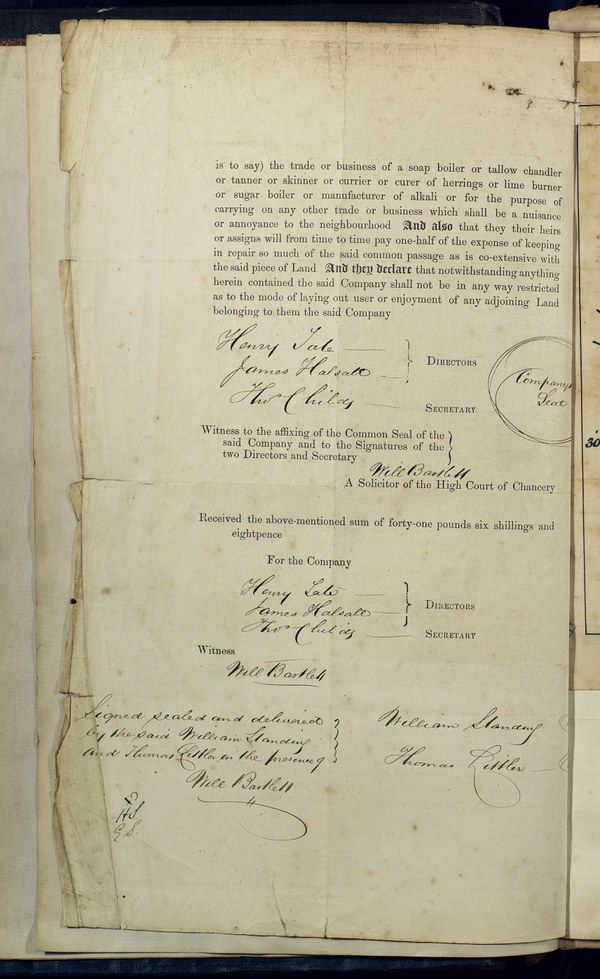 is to say) the trade or business of a soap boiler or tallow chandler
or tanner or skinner or currier or curer of herrings or lime burner
or sugar boiler or manufacturer of alkali or for the purpose of
carrying on any other trade or business which shall be a nuisance
or annoyance to the neighbourhood And also that they their heirs
or assigns will from time to time pay one-half of the expense of keeping
in repair so much of the said common passage as is co-extensive with
the said piece of Land And they declare that notwithstanding anything
herein contained the said Company shall not be in any way restricted
as to the mode of laying out user or enjoyment of any adjoining Land
belonging to them the said Company
Henry Tate
James Halsall
Directors
Thos Childs
Secretary
Company's
Seal
Witness to the affixing of the Common Seal of the
said Company and to the Signatures of the
two Directors and Secretary
Will Bartlett
A Solicitor of the High Court of Chancery
Received the above-mentioned sum of forty-one pounds six shillings and
eightpence
For the Company
Henry Tate
James Halsall
Directors
Thos Childs
Secretary
Witness
Will Bartlett
Signed sealed and delivered
by the said William Standing
and Thomas Littler in the presence of
Will Bartlett
William Standing
Thomas Littler
30